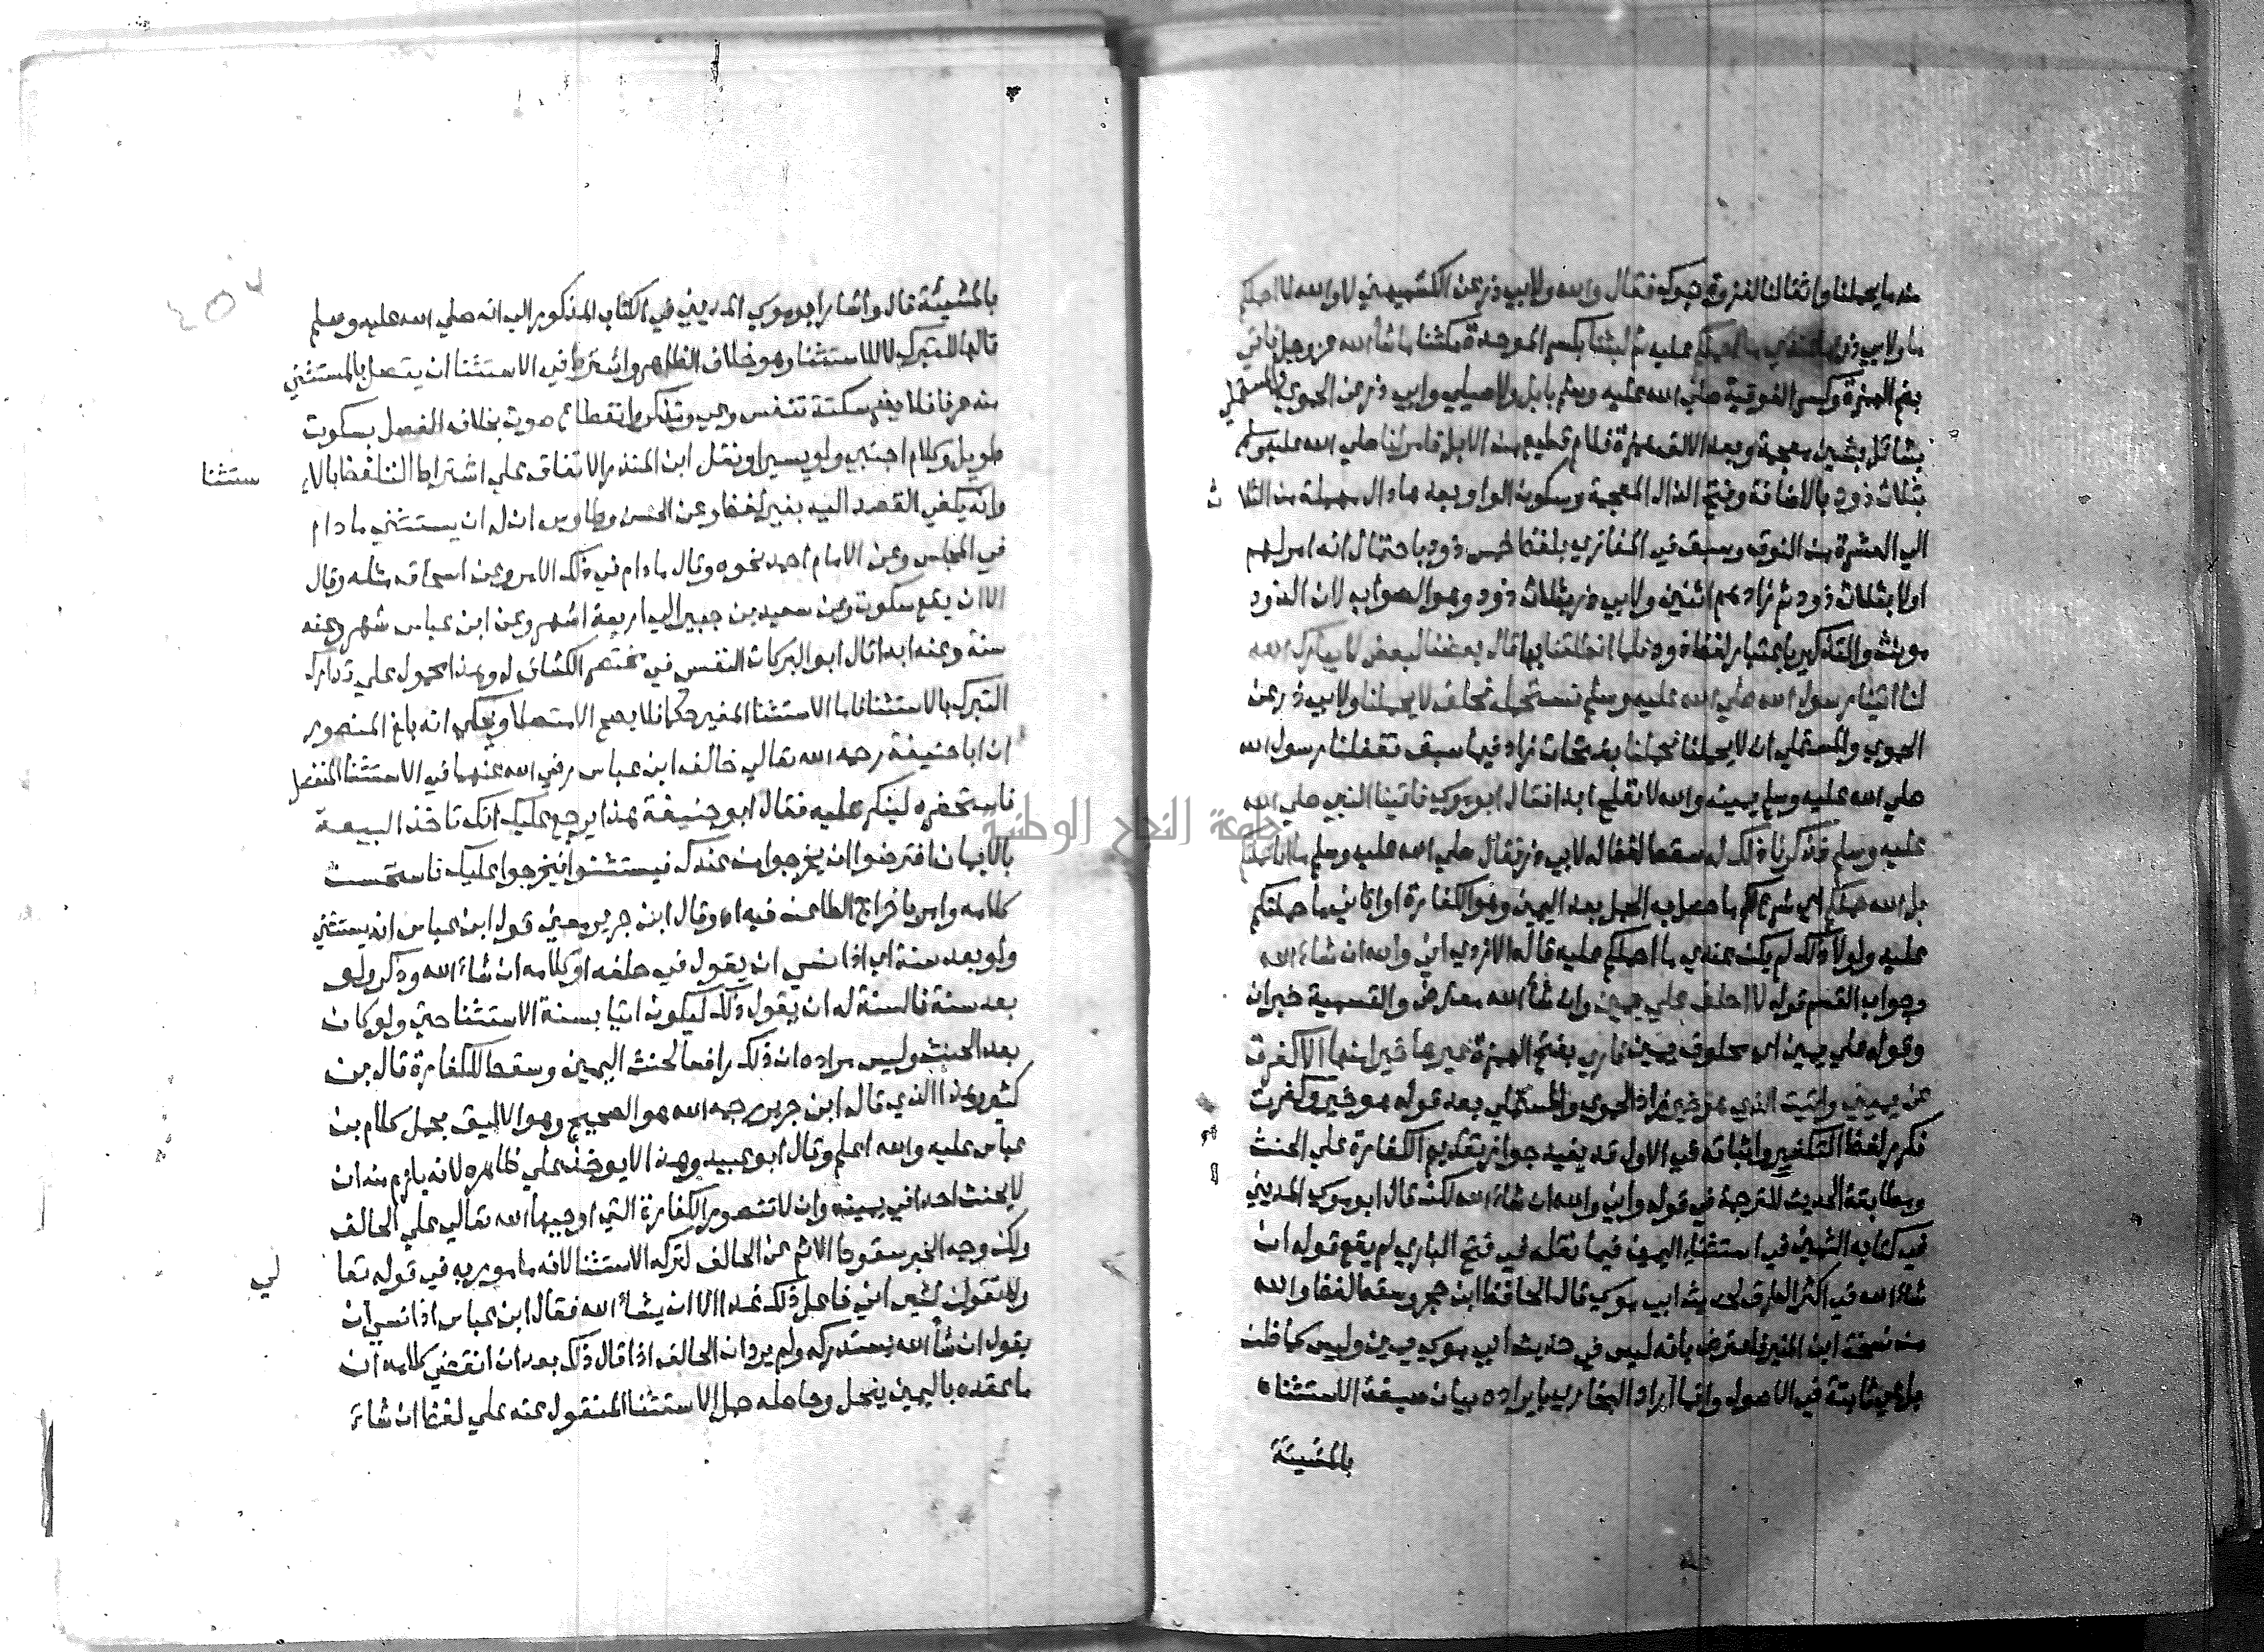 منه ما يحملنا واثقالنا لغزوة تبوك فقال والله ولابي ذر عن الكشميهني لا والله لا احملكم
ما ولابي ذر وما عندي ما احملكم عليه ثم لبثنا بكسر الموحدة مكثنا ما شاء الله عز وجل فاتي
بضم الهمزة وكسر الفوقية صلي الله عليه وسلم بابل وللاصيلي وابي ذر عن الحموي والمستملي
بشائل بشين معجمة وبعد الالف همزة فلام قطيع من الابل فامر لنا صلي الله عليه وسلم
بثلاث ذود بالاضافة وفتح الذال المعجمة وسكون الواو بعدها دال مهملة من الثلاث
الي العشرة من النوق وسبق في المغازي بلفظ خمس ذود باحتمال انه امر لهم
اولا بثلاث ذود ثم زادهم اثنين ولابي ذر بثلاث ذود وهو الصواب لان الذود
مونث والتذكير باعتبار لفظ ذود فلما انطلقنا بها قال بعضنا لبعض لا يبارك الله
لنا اتينا رسول الله صلي الله عليه وسلم نستحمله فحلف لا يحملنا ولابي ذر عن
الحموي والمستملي ان لا يحملنا فحملنا بفتحات زاد فيما سبق تغفلنا رسول الله
صلي الله عليه وسلم يمينه والله لا نفلح ابدا فقال ابو موسي فاتينا النبي صلي الله
عليه وسلم فذكرنا ذلك له سقط لفظ له لابي ذر فقال صلي الله عليه وسلم ما انا حملتكم
بل الله حملكم اي شرع لكم ما حصل به الحمل بعد اليمين وهو الكفارة او اتاني بما حملتكم
عليه ولولا ذلك لم يكن عندي ما احملكم عليه قاله المازري اني والله ان شاء الله
وجواب القسم قوله لا احلف علي يمين وان شاء الله معترض والقسمية خبر ان
وقوله علي يمين اي محلوف يمين فاري بفتح الهمزة غيرها خيرا منها الا كفرت
عن يميني واتيت الذي هو خير زاد الحموي والمستملي بعد قوله هو خير وكفرت
فكرر لفظ التكفير واثباته في الاول قد يفيد جواز تقديم الكفارة علي الحنث
ومطابقة الحديث للترجمة في قوله واني والله ان شاء الله لكن قال ابو موسي المديني
في كتابه الثمين في استثناء اليمين فيما نقله في فتح الباري لم يقع قوله ان
شاء الله في اكثر الطرق لحديث ابي موسي قال الحافظ ابن حجر وسقط لفظ والله
من نسخة ابن المنير فاعترض بانه ليس في حديث ابي موسي يمين وليس كما ظن
بل هي ثابتة في الاصول وانما اراد البخاري بايراده بيان صيغة الاستثنا
بالمشيئة
بالمشيئة قال واشار ابو موسي المديني في الكتاب المذكور الي انه صلي الله عليه وسلم
قالها للتبرك لا للاستثنا وهو خلاف الظاهر واشترط في الاستثنا ان يتصل بالمستثني
منه عرفا فلا يضر سكتة تنفس وعي وتذكر وانقطاع صوت بخلاف الفصل بسكوت
طويل وكلام اجنبي ولو يسيرا ونقل ابن المنذر الاتفاق علي اشتراط التلفظ بالاستثنا
وانه يكفي القصد اليه بغير لفظ وعن الحسن وطاوس ان له ان يستثني ما دام
في المجلس وعن الامام احمد نحوه وقال ما دام في ذلك الامر وعن اسحاق مثله وقال
الا ان يقع سكوت وعن سعيد بن جبير الي اربعة اشهر وعن ابن عباس شهر وعنه
سنة وعنه ابدا قال ابو البركات النسفي في مختصر الكشاف له وهذا محمول علي تدارك
التبرك بالاستثنا فاما الاستثنا المغير حكما فلا يصح الا متصلا ويحكي انه بلغ المنصور
ان ابا حنيفة رحمه الله تعالي خالف ابن عباس رضي الله عنهما في الاستثنا المنفصل
فاستحضره لينكر عليه فقال ابو حنيفة هذا يرجع عليك انك تاخذ البيعة
بالايمان افترضوا ان يخرجوا من عندك فيستثنوا فيخرجوا عليك فاستحسن
كلامه وامر باخراج الطاعن فيه اه وقال ابن جرير معني قول ابن عباس انه يستثني
ولو بعد سنة اي اذا نسي ان يقول في حلفه او كلامه ان شاء الله وذكر ولو
بعد سنة فالسنة له ان يقول ذلك ليكون اتيا بسنة الاستثنا حتي ولو كان
بعد الحنث وليس مراده ان ذلك رافعا لحنث اليمين ومسقطا للكفارة قال بن
كثير وهذا الذي قاله ابن جرير رحمه الله هو الصحيح وهو الاليق بحمل كلام بن
عباس عليه والله اعلم وقال ابو عبيد وهذا لا يوخذ علي ظاهره لانه يلزم منه ان
لا يحنث احد في يمينه وان لا تتصور الكفارة التي اوجبها الله تعالي علي الحالف
ولكن وجه الخبر سقوط الاثم عن الحالف لتركه الاستثنا لانه مامور به في قوله تعالي
ولا تقولن لشيء اني فاعل ذلك غدا الا ان يشاء الله فقال ابن عباس اذا نسي ان
يقول ان شاء الله يستدركه ولم يرد ان الحالف اذا قال ذلك بعد ان انقضي كلامه ان
ما عقده باليمين ينحل وحاصله حمل الاستثنا المنقول عنه علي لفظ ان شاء
جامعة النجاح الوطنية